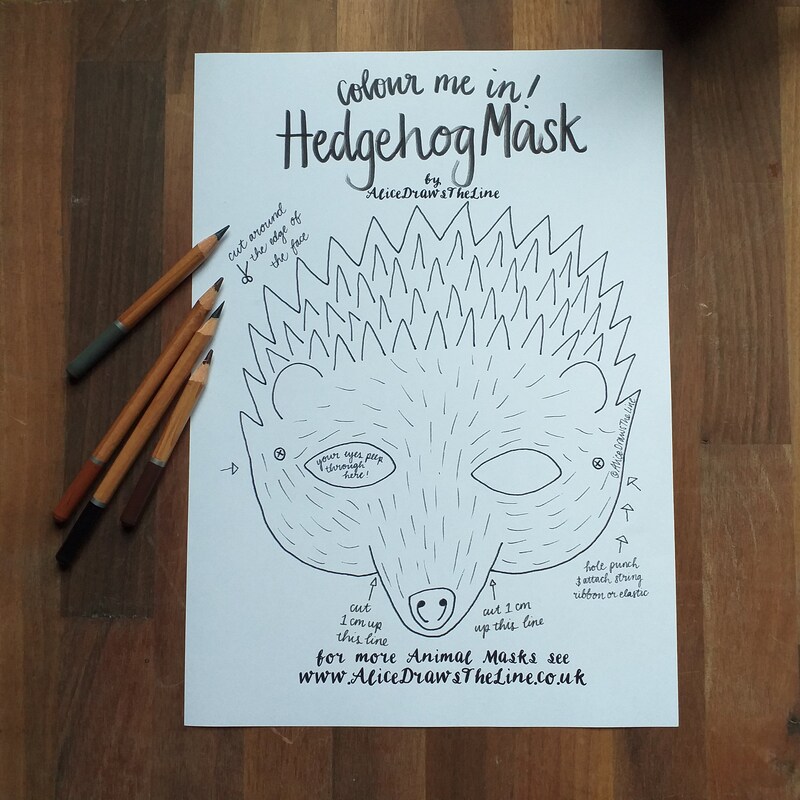 colour me in!
Hedgehog Mask
by
AliceDrawsTheLine
cut around
the edge of
the face
your eyes peep
through
here!
©AliceDrawsTheLine
hole punch
& attach string
ribbon or elastic
cut
1 cm up
this line
cut 1 cm
up this line
for more Animal Masks see
www.AliceDrawsTheLine.co.uk